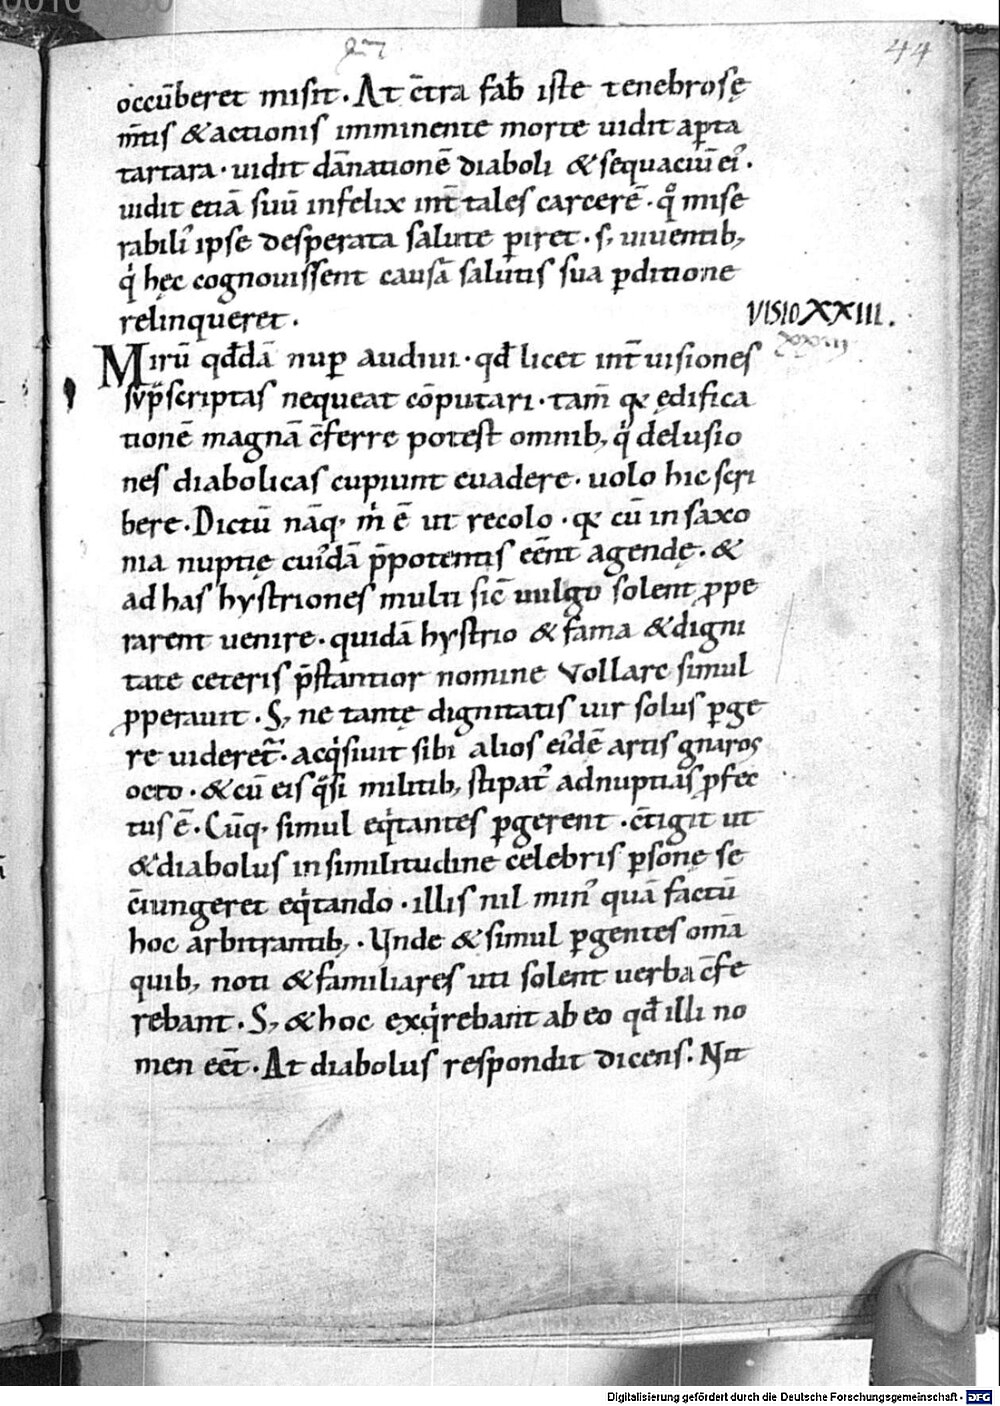 44
occūberet misit. At c̄tra fab̄ iste tenebrosę
m̄tis &actionis imminente morte uidit aꝑta
tartara. uidit dānationē diaboli & sequaciū ei᾽.
uidit etiā suū infelix int̄ tales carcerē. qͦ mise
rabili᾽ ipse desperata salute ꝑiret. s; uiuentib;
qⁱ hęc cognouissent causā salutis sua ꝑditione
relinqueret.
VISIO XXIII.
Mirū qđdā nuꝑ audiui. qđ licet int̄ uisiones
sup̄scriptas nequeat cōputari. tam̄ qꝛ ędifica
tionē magnā c̄ferre potest omnib; qⁱ delusio
nes diabolicas cupiunt euadere. uolo hic scri
bere. Dictū nāq; m̄ ē ut recolo. qꝛ cū in saxo
nia nuptię cui᾽dā p̄potentis eēnt agendę. &
ad has hystriones multi sic̄ uulgo solent ꝓpe
rarent uenire. quidā hystrio & fama &digni
tate ceteris p̄stantior nomine Vollarc simul
ꝓperauit. S; ne tantę dignitatis uir solus ꝑge
re uideret᷑. acqⁱsiuit sibi alios ei᾽dē artis gnaros
octo. &cū eis qᵃsi militib; stipat᾽ adnuptias ꝓfec
tus ē. Cūq; simul eqⁱtantes ꝑgerent. c̄tigit ut
&diabolus in similitudine celebris ꝑsonę se
c̄iungeret eqⁱtando. illis nil min᾽ quā factū
hoc arbitrantib;. Vnde & simul ꝑgentes om̄a
quib; noti & familiares uti solent uerba c̄fe
rebant. S; &hoc exqⁱrebant ab eo qđ illi no
men eēt. At diabolus respondit dicens. Nit
Digitalisierung gefördert durch die Deutsche Forschungsgemeinschaft - DFG